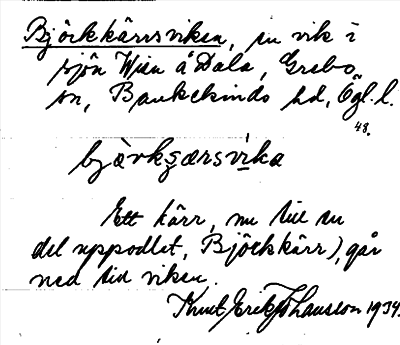 Björkkärrsviken, en vik i
sjön Wien å Dala, Grebo
sn, Bankekinds hd, Ögl. l.
48.
bjårkşærsvika
Ett kärr, nu till en
del uppodlat, Björkkärr), går
ned till viken.
Knut Erik Johansson 1934.